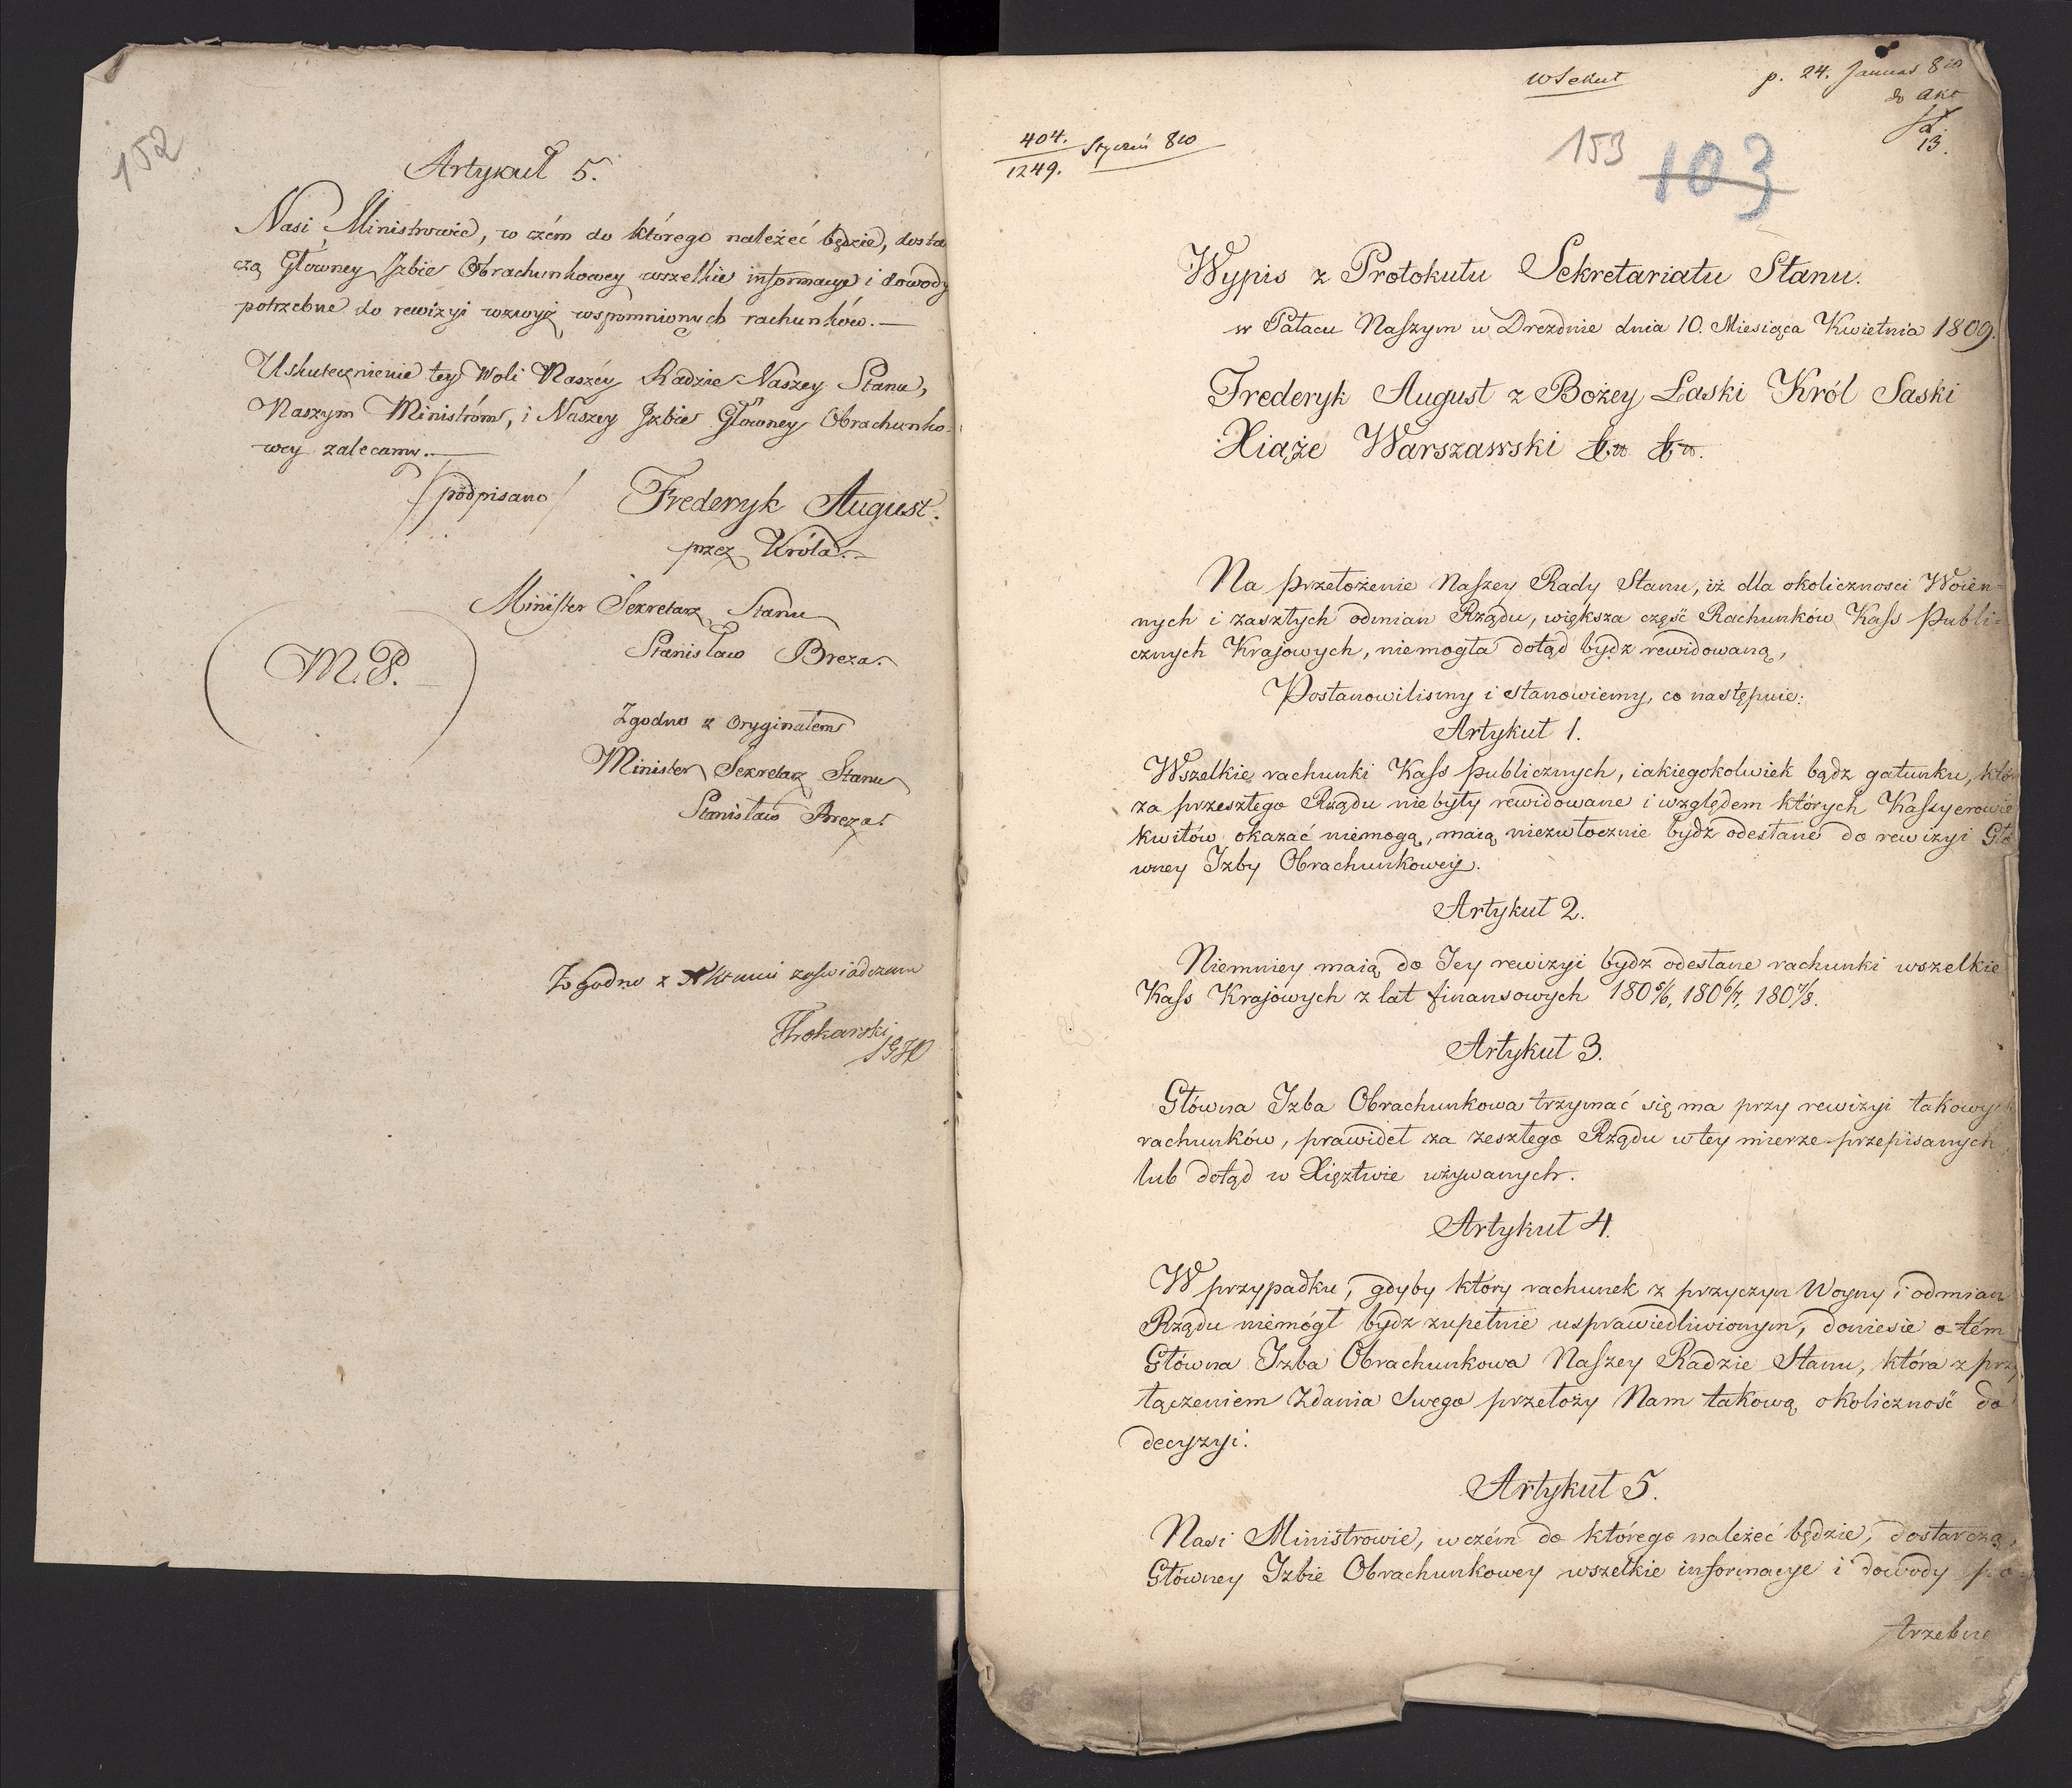 152
Artykuł 5.
Nasi Ministrowie, w czém do którego należeć będzie, dosta
czą Głowney Izbie Obrachunkowey wszelkie informacye i dowody
potrzebne do rewizyi wzwyż wspomnionych rachunków.—
Uskutecznienie tey Woli Naszéy Radzie Naszey Stanu,
Naszym Ministróm, i Naszey Izbie Głowney Obrachunko-
wey zalecamy.—
/podpisano/ Frederyk August.
przez Króla.—
Minister Sekretarz Stanu
Stanisław Breza.
M.P.
Zgodno z Oryginałem
Minister Sekretarz Stanu
Stanisław Breza.
Zgodno z Aktami zaświadczam
404. Styczeń 810
1249.
p. 24. Januar 810
do akt
13.
153 103
Wypis z Protokułu Sekretariatu Stanu.
w Pałacu Naszym w Dreznie dnia 10. Miesiąca Kwietnia 1809.
Frederyk August z Bożey Łaski Król Saski
Xiąże Warszawski &c &c.
Na przełożenie Naszey Rady Stanu, iż dla okoliczności Woien=
nych i zaszłych odmian Rządu, większa część Rachunków Kass Publi=
cznych Krajowych, niemogła dotąd bydz rewidowaną,
Postanowilismy i stanowiemy, co następuie:
Artykuł 1.
Wszelkie rachunki Kass publicznych, iakiegokolwiek bądz gatunku, któr
za przeszłego Rządu nie były rewidowane i względem których Kassyerowie
kwitów okazać niemogą, maią niezwłocznie bydź odesłane do rewizyi Głó
wney Izby Obrachunkowéy.
Artykuł 2.
Niemniey maią do Jey rewizyi bydz odesłane rachunki wszelkie
Kass Krajowych z lat finansowych 1805/6, 1806/7, 1807/8.
Artykuł 3.
Główna Izba Obrachunkowa trzymać się ma przy rewizyi takowych
rachunków, prawideł za zeszłego Rządu w tey mierze przepisanych
lub dotąd w Xięztwie używanych.
Artykuł 4.
W przypadku, gdyby który rachunek z przyczyn Woyny i odmian
Rządu niemógł bydz zupełnie usprawiedliwionym, doniesie o tém
Główna Izba Obrachunkowa Naszey Radzie Stanu, która z przy
łączeniem Zdania Swego przełoży Nam takową okoliczność do
decyzyi.
Artykuł 5.
Nasi Ministrowie, w czém do którego należeć będzie, dostarczą
Główney Izbie Obrachunkowey wszelkie informacye i dowody po
trzebne